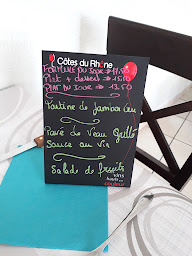 Côtes du Rhône
FORMULE DU JOUR
Plat + dessert
PLAT DU JOUR
Tartine de jambon cru
Pavé de Veau Grillé
Sauce au vin
Salade de fruits
vins
couleur